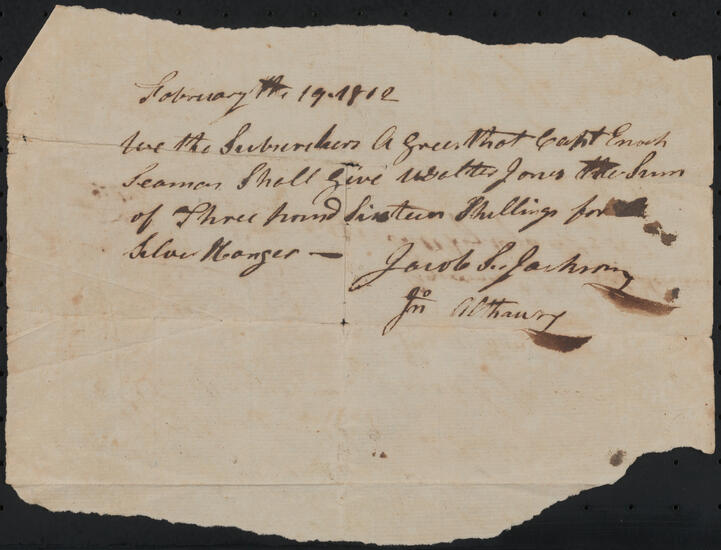 February the 19. 1812
We the Subscribers Agrees that Capt Enoch
Seaman Shall Give Walter Jones the Sum
of Three pound Sixteen Shillings for
Silver Hanger —
Jacob S. Jackson
Jno